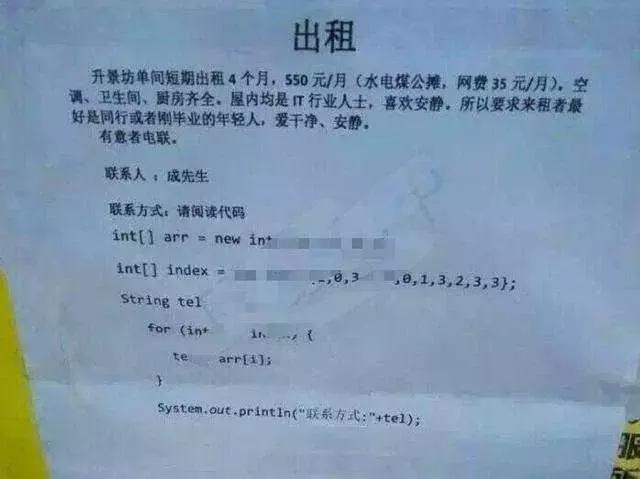 出租
升景坊单间短期出租4个月，550元/月（水电煤公摊，网费35元/月），空
调、卫生间、厨房齐全。屋内均是IT行业人士，喜欢安静。所以要求来租者最
好是同行或者刚毕业的年轻人，爱干净、安静。
有意者电联。
联系人：成先生
联系方式：请阅读代码
int[] arr = new
int[] index = ,0,3 ,0,1,3,2,3,3};
String tel
for (int {
arr[i];
}
System.out.println("联系方式:"+tel);